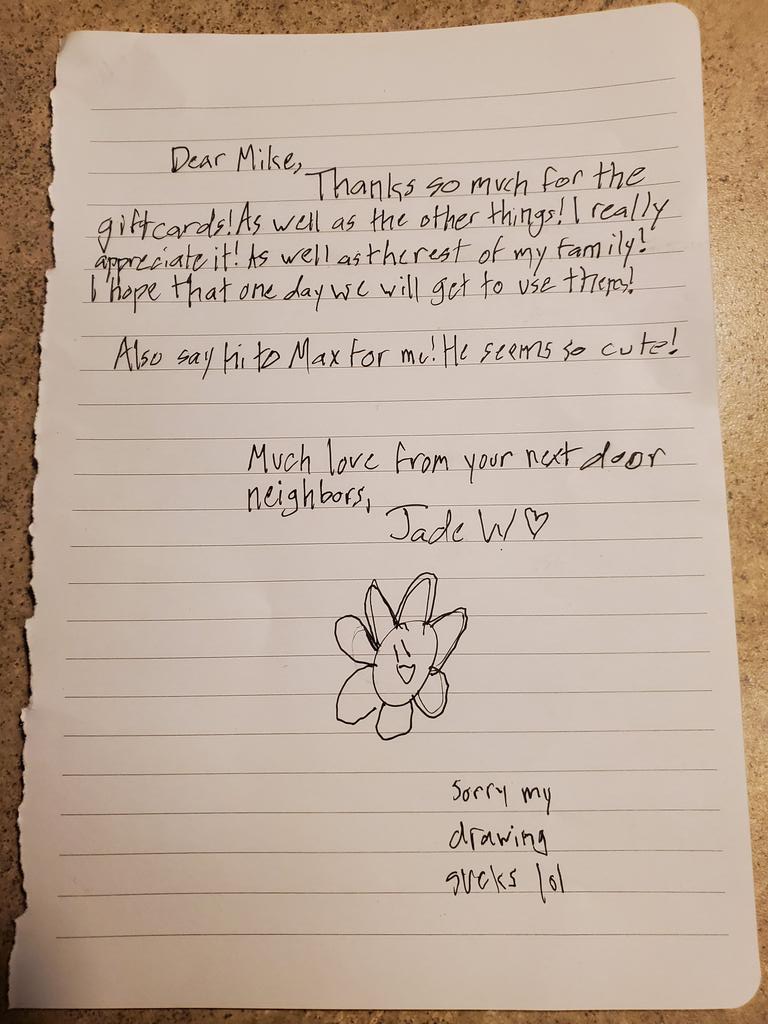 Dear Mike,
Thanks so much for the
giftcards! As well as the other things! I really
appreciate it! As well as the rest of my family!
I hope that one day we will get to use them!
Also say hi to Max for me! He seems so cute!
Much love from your next door
neighbors,
Jade W♡
Sorry my
drawing
sucks lol